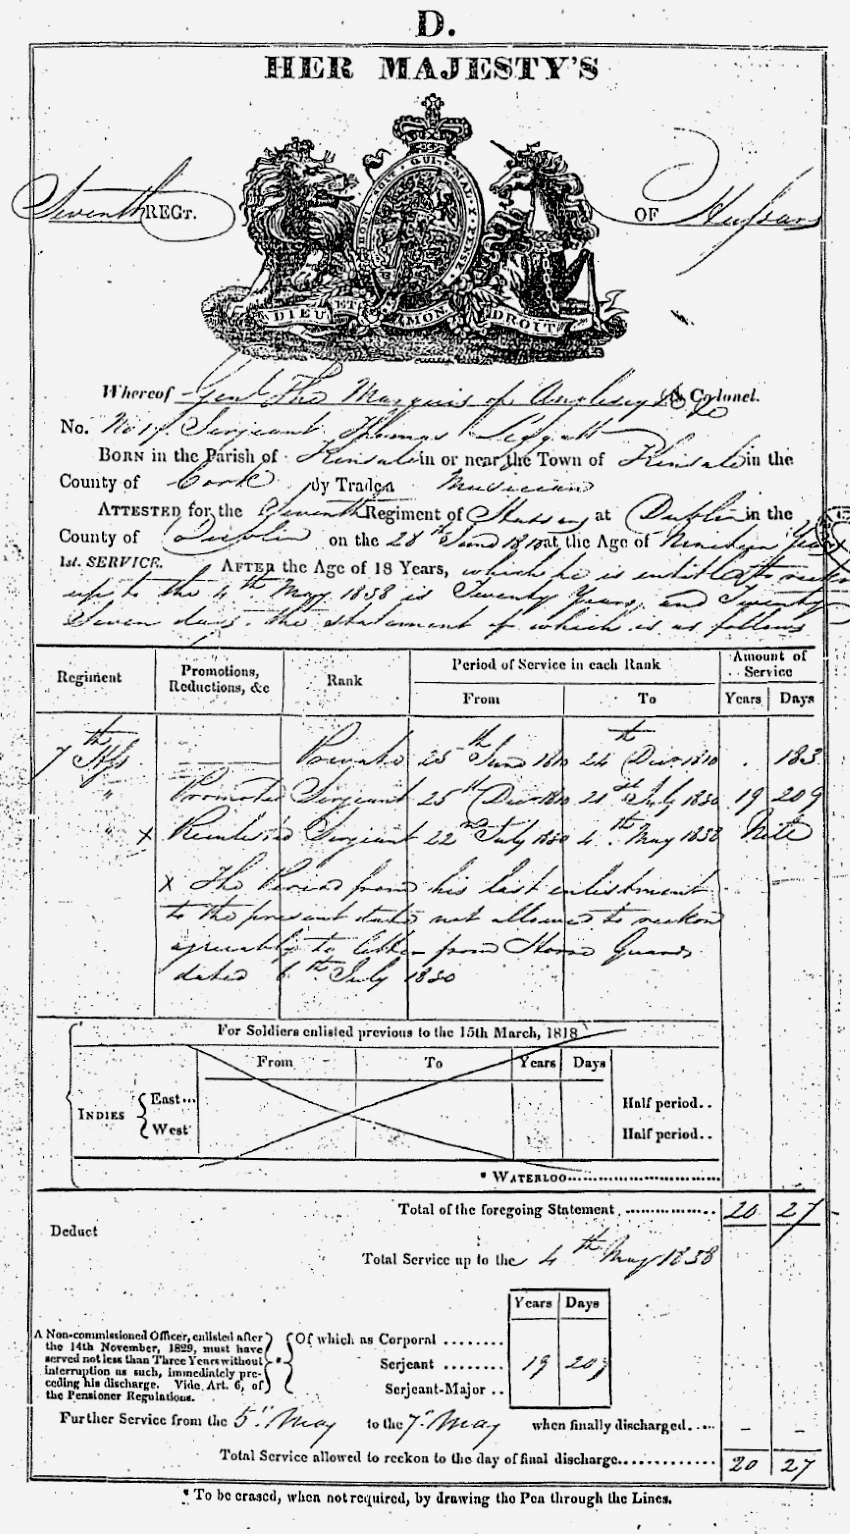 D.
HER MAJESTY'S
HONI SOIT QUI MAL Y PENSE
Seventh REGT. OF Hussars
DIEU ET MON DROIT
Whereof Genl The Marquis of Anglesey is Colonel.
No. Serjeant Thomas
BORN in the Parish of Kinsale in or near the Town of Kinsale in the
County of Cork by Trade a Musician
ATTESTED for the Seventh Regiment of Hussars at Dublin in the
County of Dublin on the 28th June 1810 at the Age of Nineteen Years
1st. SERVICE. AFTER the Age of 18 Years, which he is entitled to reckon
up to the 4th May 1838 is Twenty Years, and Twenty
Seven days, the statement of which is as follows
Regiment Promotions, Reductions, &c Rank Period of Service in each Rank Amount of Service
From To Years Days
7th Private 25th June 1810 24th Decr 1810 . 183
" Promoted Serjeant 25th Decr 1810 21st July 1830 19 209
" x Reenlisted Serjeant 22nd July 1830 4th May 1838
x The Period from his last enlistment
to the present date not allowed to reckon
agreeably to letter from Horse Guards
dated 6th July 1830
For Soldiers enlisted previous to the 15th March, 1818
From To Years Days
INDIES East... Half period..
West Half period..
* WATERLOO
Total of the foregoing Statement 20 27
Deduct
Total Service up to the 4th May 1838
Years Days
A Non-commissioned Officer, enlisted after
the 14th November, 1829, must have
served not less than Three Years without
interruption as such, immediately pre-
ceding his discharge. Vide Art. 6, of
the Pensioner Regulations.
Of which as Corporal
Serjeant 19 209
Serjeant-Major ..
Further Service from the 5th May to the 7th May when finally discharged - -
Total Service allowed to reckon to the day of final discharge 20 27
* To be erased, when not required, by drawing the Pen through the Lines.